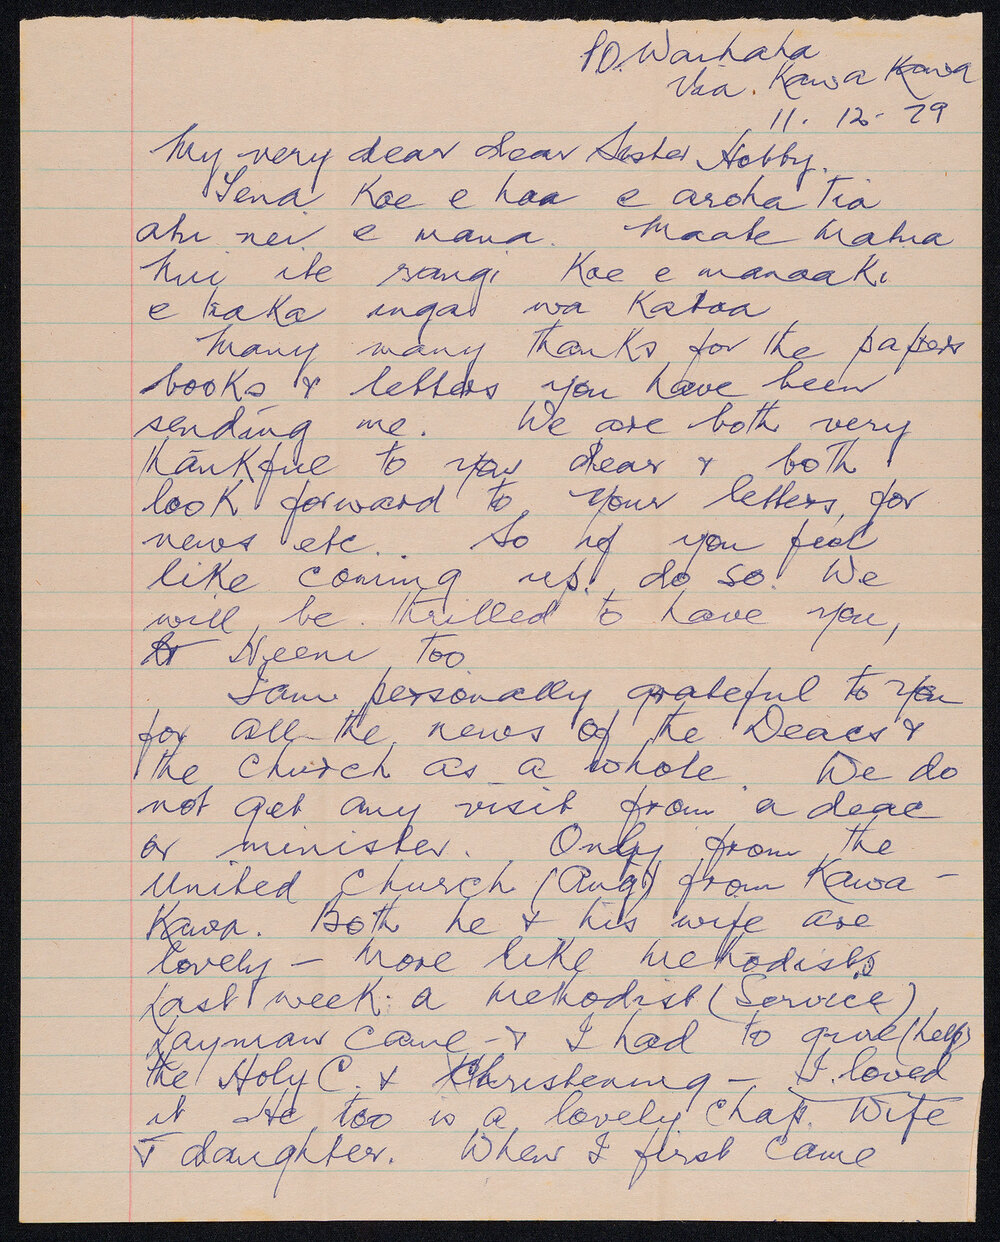 P.O. Waihaha
Via. Kawa Kawa
11. 12. 79
My very dear dear Sister Hobby.
Tena Koe e hoa e aroha tia
atu nei e maua. Maate Matua
Nui ite rangi Koe e manaaki
e tiaka inga wa Katoa
Many many thanks for the papers
books & letters you have been
sending me. We are both very
thankful to you dear & both
look forward to your letters, for
news etc.. So if you feel
like coming up, do so. We
will be thrilled to have you,
& Heeni too
I am personally grateful to you
for all the news of the Deacs &
the church as a whole We do
not get any visit from a deac
or minister. Only from the
United Church (Ang) from Kawa-
Kawa. Both he & his wife are
lovely – more like methodists
Last week: a methodist (Service)
Layman came – & I had to give (help)
the Holy C. & Christening – I loved
it He too is a lovely chap. Wife
& daughter. When I first came